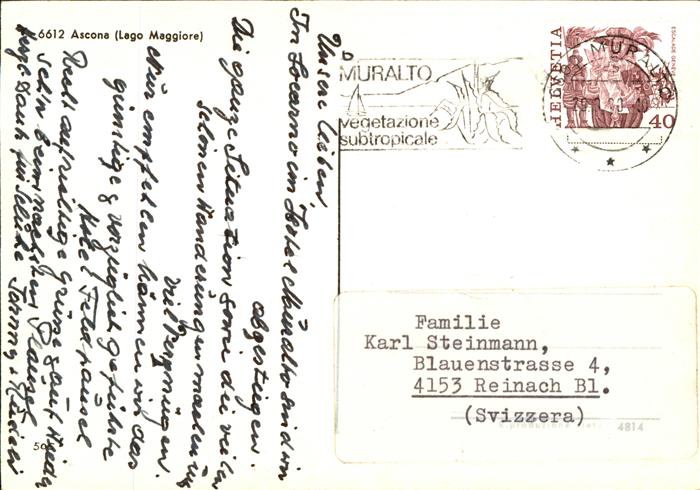 6612 Ascona (Lago Maggiore)
Unsere Lieben,
In Locarno im Hotel Muralto sind wir
abgestiegen.
Die ganze Situation sowie die vielen
schönen Wanderungen machen uns
viel Vergnügen.
Nur empfehlen können wir das
günstige & vorzüglich geführte
Hotel
Recht aufrichtige Grüsse & auf Wieder
sehn beim nächsten
Dank für
MURALTO
vegetazione
subtropicale
HELVETIA
40
MURALTO
Familie
Karl Steinmann,
Blauenstrasse 4,
4153 Reinach Bl.
(Svizzera)
4814